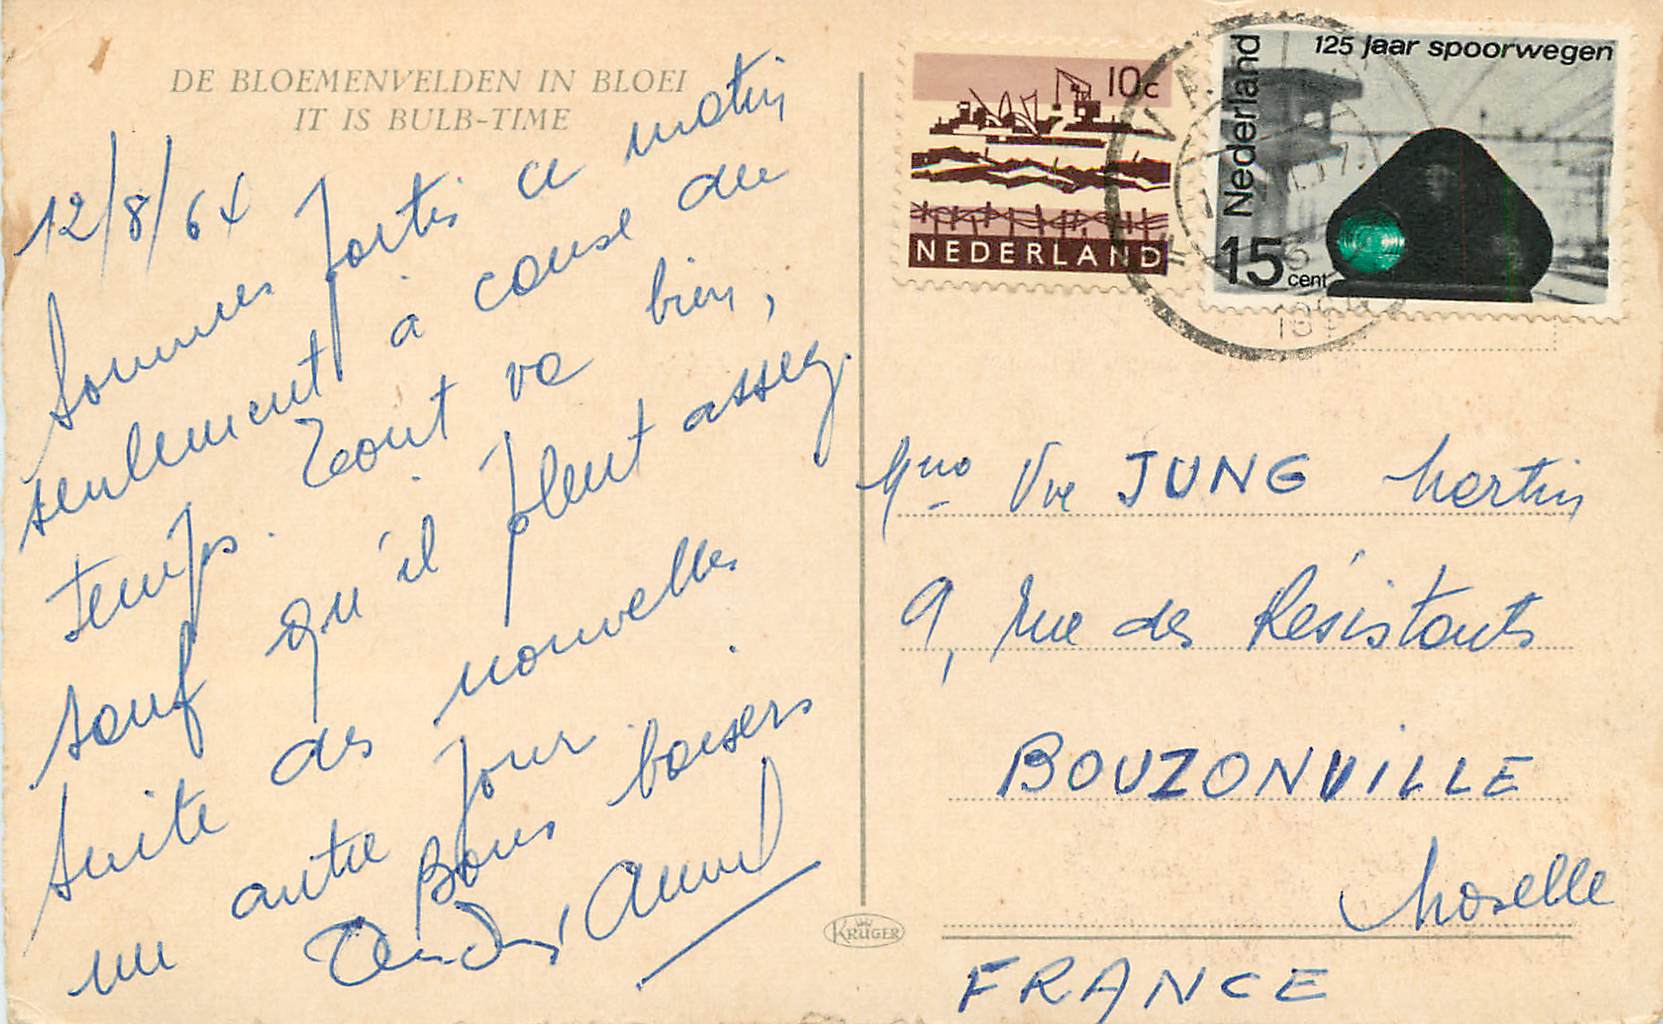 DE BLOEMENVELDEN IN BLOEI
IT IS BULB-TIME
12/8/64
Sommes partis ce matin
seulement à cause du
temps. Tout va bien,
sauf qu'il pleut assez.
Suite des nouvelles
un autre jour.
Bons baisers
KRÜGER
10c
NEDERLAND
125 jaar spoorwegen
Nederland
15 cent
Vve JUNG Martin
9, rue des Résistants
BOUZONVILLE
Moselle
FRANCE